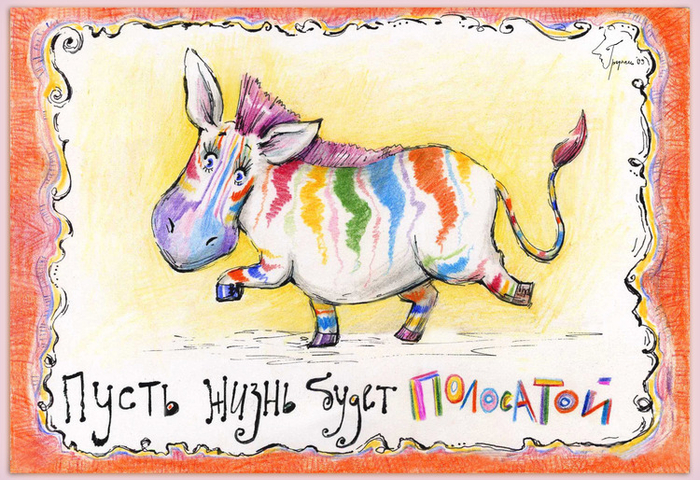 Пусть жизнь будет ПОЛОСАТОЙ